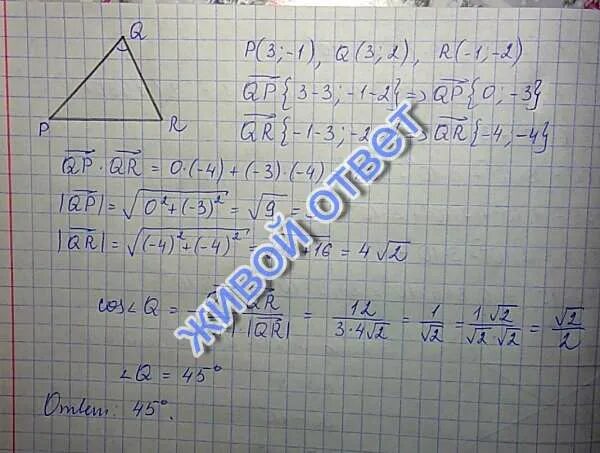 Q
P
R
P(3;-1), Q(3;2), R(-1;-2)
QP{3-3; -1-2} => QP{0; -3}
QR{-1-3; -2 QR{-4; -4}
QP · QR = 0·(-4)+(-3)·(-4)
|QP| = √(0²+(-3)²) = √9 =
|QR| = √((-4)²+(-4)²) = +16 = 4√2
cos∠Q = QR / |QR| = 12 / 3·4√2 = 1 / √2 = 1·√2 / √2·√2 = √2 / 2
∠Q = 45°
Ответ: 45°.
ЖИВОЙ ОТВЕТ